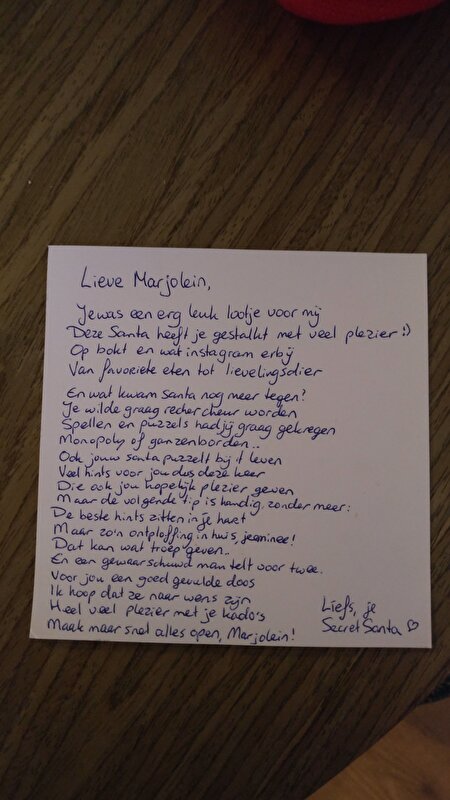 Lieve Marjolein,
Je was een erg leuk lootje voor mij
Deze Santa heeft je gestalkt met veel plezier :)
Op bokt en wat instagram erbij
Van favoriete eten tot lievelingsdier
En wat kwam Santa nog meer tegen?
Je wilde graag rechercheur worden
Spellen en puzzels had jij graag gekregen
Monopoly of ganzenborden..
Ook jouw santa puzzelt bij 't leven
Veel hints voor jou dus deze keer
Die ook jou hopelijk plezier geven
Maar de volgende tip is handig, zonder meer:
De beste hints zitten in je hart
Maar zo'n ontploffing in huis, jeeminee!
Dat kan wat troep geven..
En een gewaarschuwd man telt voor twee.
Voor jou een goed gevulde doos
Ik hoop dat ze naar wens zijn
Heel veel plezier met je kado's
Maak maar snel alles open, Marjolein!
Liefs, je
Secret Santa ♡